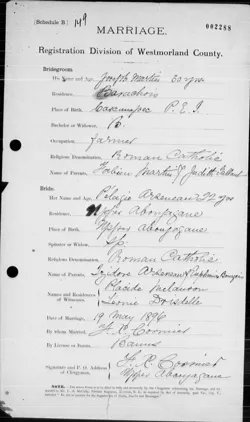 (Schedule B.) 149
002288
MARRIAGE.
Registration Division of Westmorland County.
Bridegroom:
His Name and Age, Joseph Martin 30 yrs
Residence, Barachois
Place of Birth, Cascumpec P.E.I.
Bachelor or Widower, B.
Occupation, farmer
Religious Denomination, Roman Catholic
Names of Parents, Fabien Martin & Judith Gallant
Bride:
Her Name and Age, Pélagie Arseneau 22 yrs
Residence, Upper Aboujagane
Place of Birth, Upper Aboujagane
Spinster or Widow, Sp.
Religious Denomination, Roman Catholic
Names of Parents, Isydore Arseneau &
Names and Residences of Witnesses Placide Melanson
Leonie
Date of Marriage, 19 May 1896
By whom Married, F. R. Cormier
By License or Banns, Banns
Signature and P. O. Address of Clergyman, F. R. Cormier
Upper Aboujagane